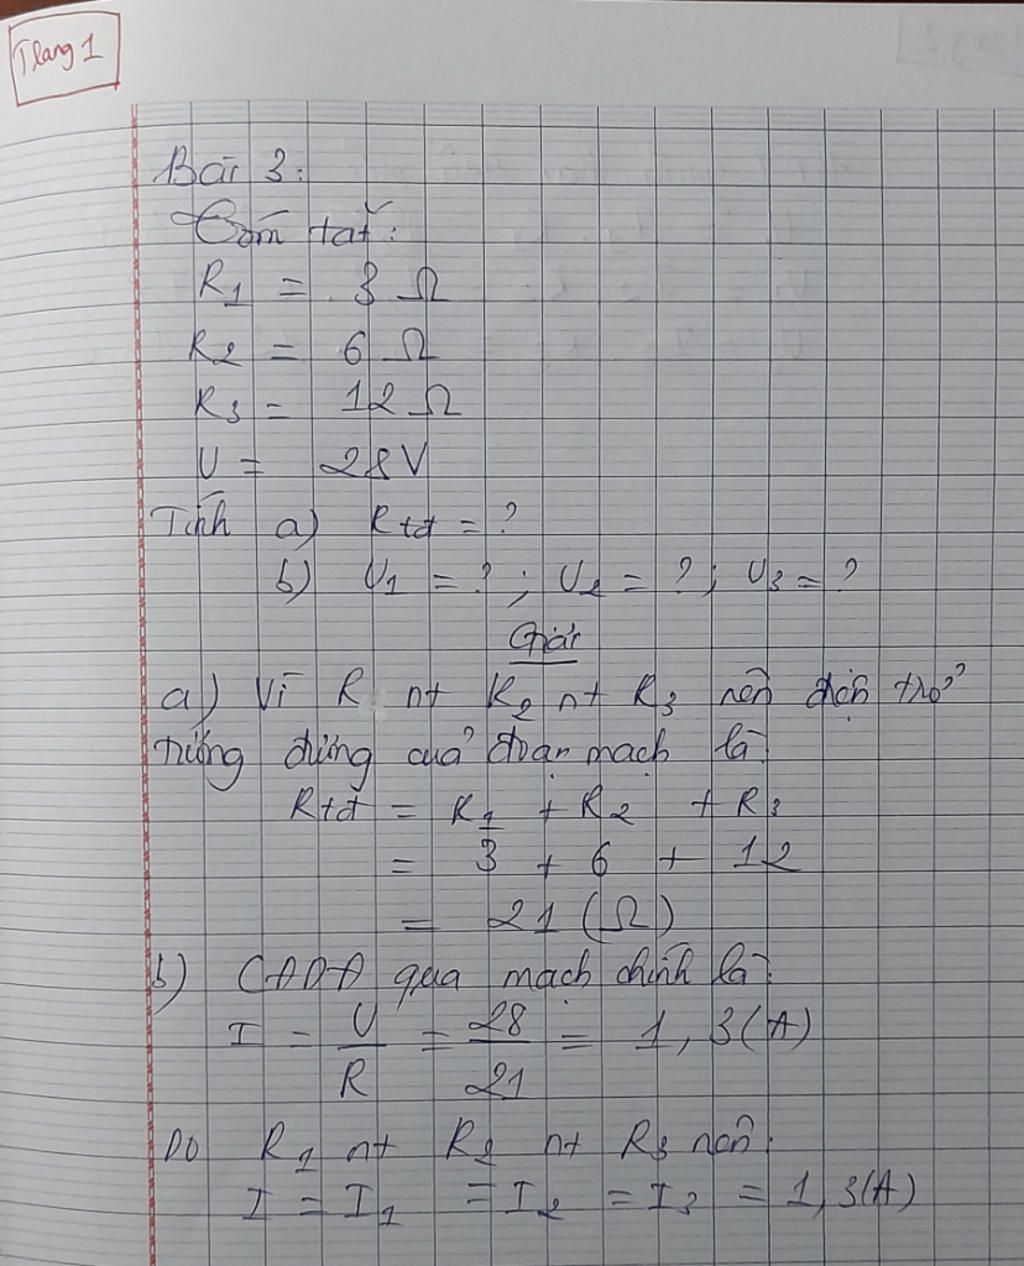 Trang 1
Bài 3:
Tóm tắt:
R1 = 3 Ω
R2 = 6 Ω
R3 = 12 Ω
U = 28V
Tính a) Rtđ = ?
b) U1 = ? ; U2 = ? ; U3 = ?
Giải
a) Vì R nt R2 nt R3 nên điện trở
tương đương của đoạn mạch là:
Rtđ = R1 + R2 + R3
= 3 + 6 + 12
= 21 (Ω)
b) CĐDĐ qua mạch chính là:
I = U/R = 28/21 = 1,3(A)
Do R1 nt R2 nt R3 nên:
I = I1 = I2 = I3 = 1,3(A)